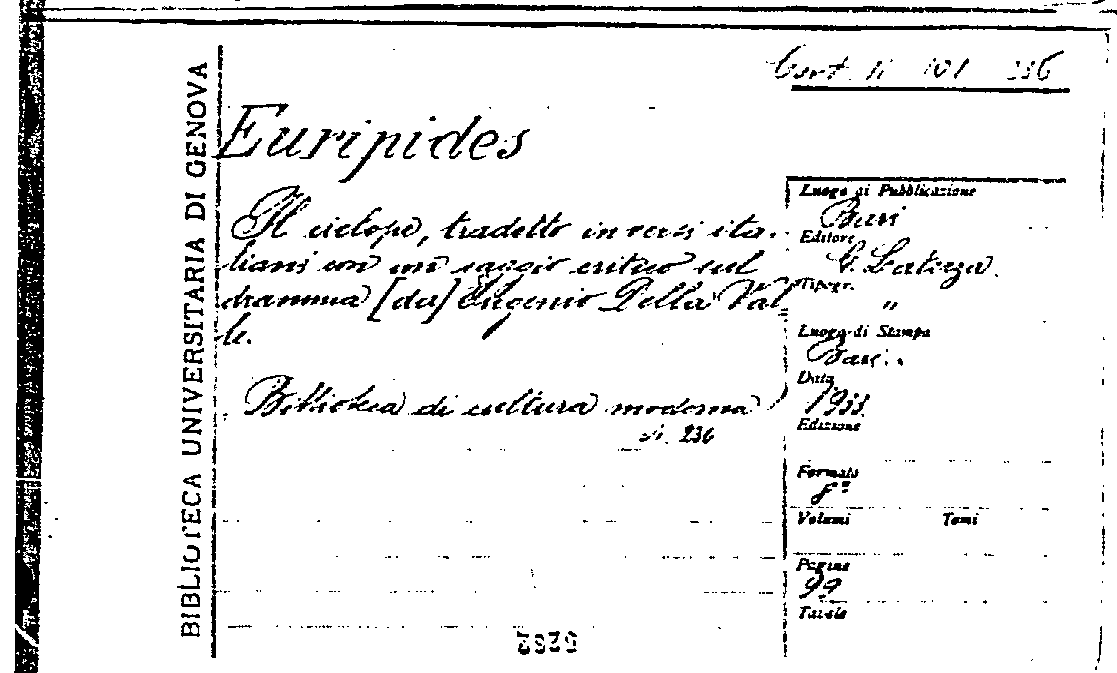 BIBLIOTECA UNIVERSITARIA DI GENOVA
101 236
Euripides
Il ciclope, tradotto in versi ita-
liani con un saggio critico sul
dramma [da] Eugenio Della Val-
le.
Biblioteca di cultura moderna
n. 236
Luogo di Pubblicazione
Bari
Editore
G. Laterza.
Tipogr.
"
Luogo di Stampa
Bari.
Data
1933
Edizione
Formato
8°
Volumi Tomi
Pagine
99
Tavole
5282